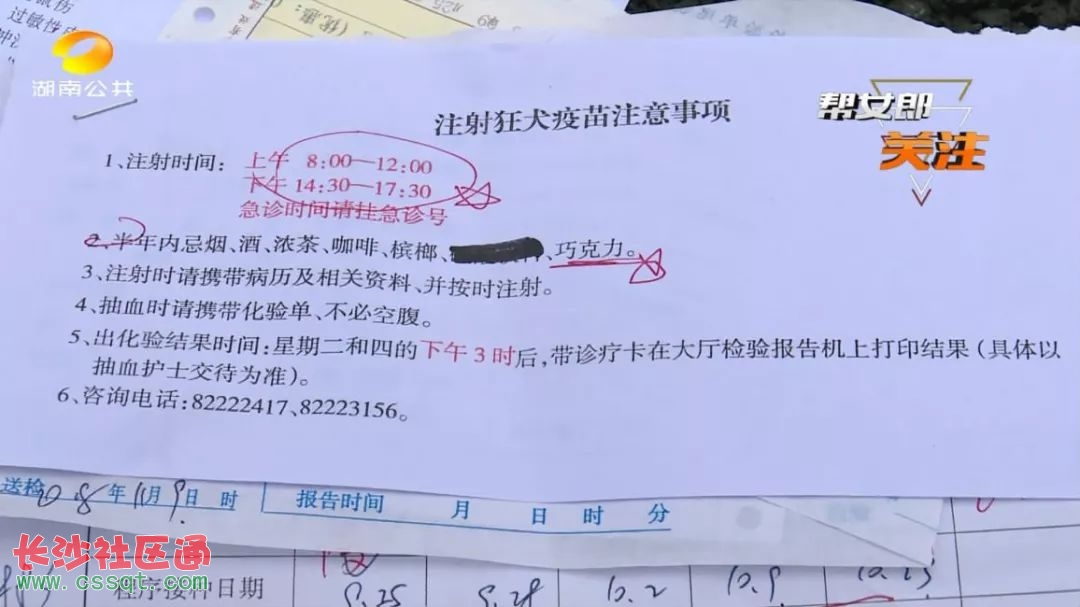 湖南公共
帮女郎
关注
过敏性皮
注射狂犬疫苗注意事项
1、注射时间：上午 8:00—12:00
下午 14:30—17:30
急诊时间请挂急诊号
2、半年内忌烟、酒、浓茶、咖啡、槟榔、、巧克力。
3、注射时请携带病历及相关资料、并按时注射。
4、抽血时请携带化验单、不必空腹。
5、出化验结果时间:星期二和四的下午3时后,带诊疗卡在大厅检验报告机上打印结果(具体以
抽血护士交待为准)。
6、咨询电话:82222417、82223156。
送检 年11月9日 时 报告时间 月 日 时 分
长沙社区通
www.cssqt.com
程序接种日期 9.25 9.28 10.2 10.9 10.23